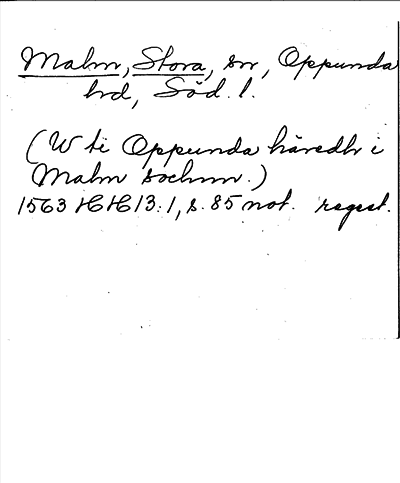 Malm, Stora, sn, Oppunda
hd, Söd. l.
(W ti Oppunda häredh i
Malm sochnn.)
1563 HH 13:1, s. 85 not. regest.